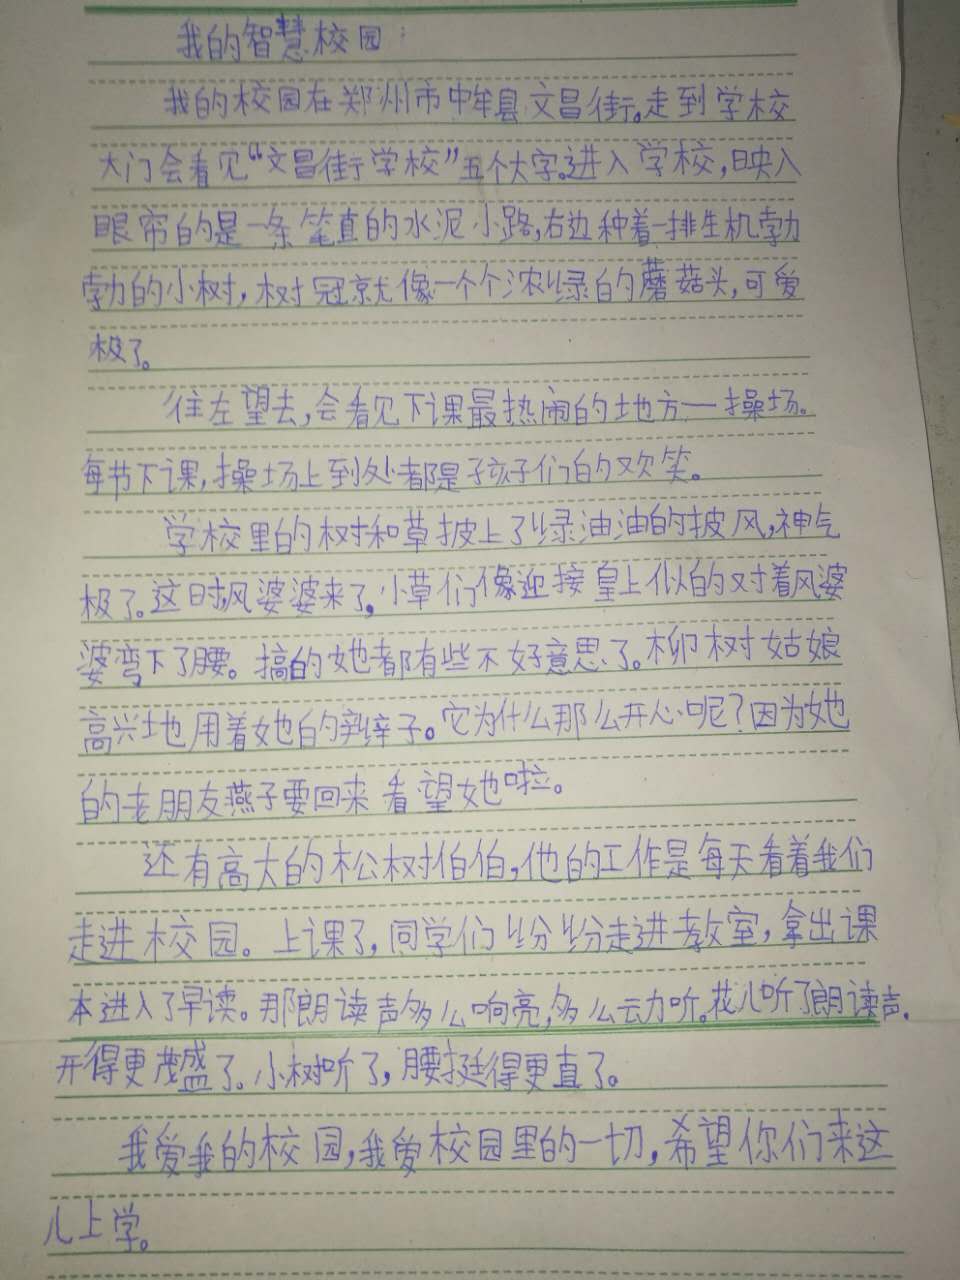 我的智慧校园:
我的校园在郑州市中牟县文昌街。走到学校
大门会看见“文昌街学校”五个大字。进入学校,映入
眼帘的是一条笔直的水泥小路,右边种着一排生机勃
勃的小树,树冠就像一个个浓绿的蘑菇头,可爱
极了。
往左望去,会看见下课最热闹的地方一操场。
每节下课,操场上到处都是孩子们的欢笑。
学校里的树和草披上了绿油油的披风,神气
极了。这时,风婆婆来了,小草们像迎接皇上似的对着风婆
婆弯下了腰。搞的她都有些不好意思了。柳树姑娘
高兴地用着她的辫子。它为什么那么开心呢?因为她
的老朋友燕子要回来看望她啦。
还有高大的松树伯伯,他的工作是每天看着我们
走进校园。上课了,同学们纷纷走进教室,拿出课
本进入了早读。那朗读声多么响亮,多么动听。花儿听了朗读声.
开得更茂盛了。小树听了,腰挺得更直了。
我爱我的校园,我爱校园里的一切,希望你们来这
儿上学。